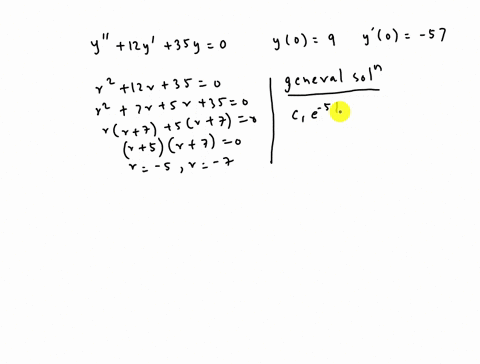 y'' + 12y' + 35y = 0   y(0) = 9   y'(0) = -57
r² + 12r + 35 = 0
r² + 7r + 5r + 35 = 0
r(r+7) + 5(r+7) = 0
(r+5)(r+7) = 0
r = -5, r = -7
general solⁿ
c₁e⁻⁵